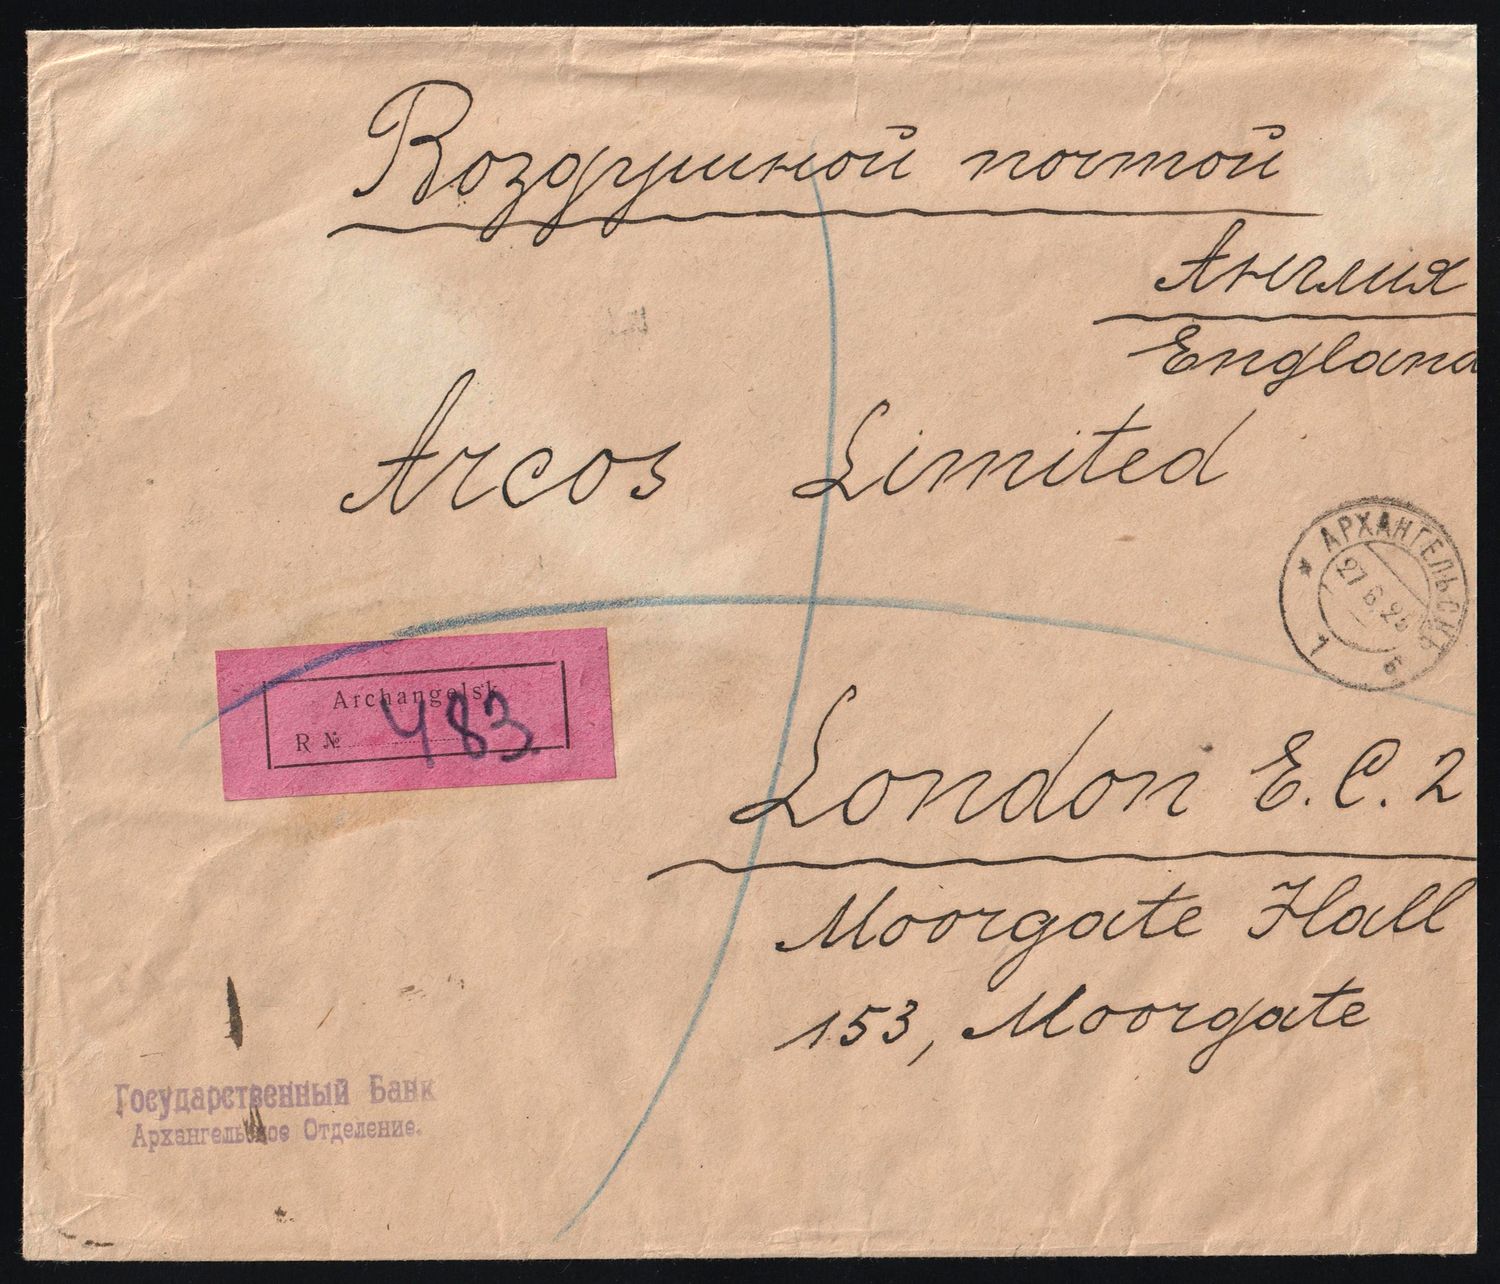 Воздушной почтой
Англия
England
Arcos Limited
* АРХАНГЕЛЬСКЪ
27.6.25
1 б
Archangelsk
R № 483
London E.C. 2
Moorgate Hall
153, Moorgate
Государственный Банк
Архангельское Отделение.